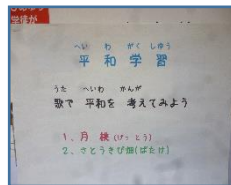 学徒が
へい わ がく しゅう
平和学習
うた へいわ かんが
歌で 平和を 考えてみよう
1、月桃(げっとう)
2、さとうきび畑(ばたけ)